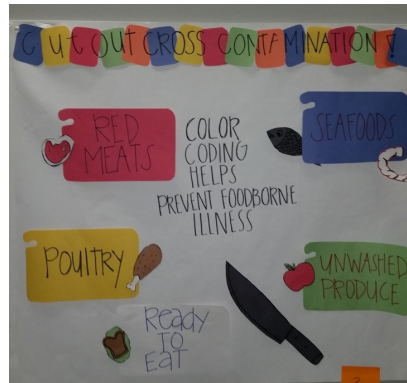 CUT OUT CROSS CONTAMINATION!
RED
MEATS
COLOR
CODING
HELPS
PREVENT FOODBORNE
ILLNESS
SEAFOODS
POULTRY
UNWASHED
PRODUCE
Ready
TO
Eat